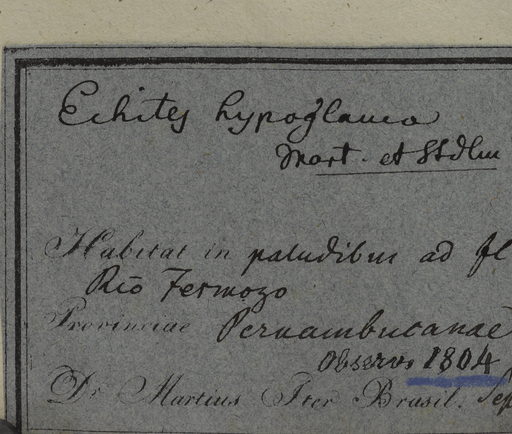 Echites hypoglauca
Mart. et Stdlm
Habitat in paludibus ad fl
Rio Fermozo
Provinciae Pernambucanae
Observ. 1804
Dr Martius Iter Brasil. Sep